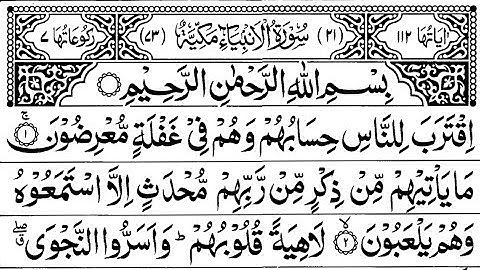 اٰیَاتُهَا ١١٢ (٢١) سُوْرَةُ الْاَنْۢبِیَآءِ مَكِّیَّةٌ (٧٣) رُكُوْعَاتُهَا ٧
بِسْمِ اللّٰهِ الرَّحْمٰنِ الرَّحِیْمِ
اِقْتَرَبَ لِلنَّاسِ حِسَابُهُمْ وَهُمْ فِیْ غَفْلَةٍ مُّعْرِضُوْنَ ۚ ١
مَا یَاْتِیْهِمْ مِّنْ ذِكْرٍ مِّنْ رَّبِّهِمْ مُّحْدَثٍ اِلَّا اسْتَمَعُوْهُ
وَهُمْ یَلْعَبُوْنَ ۙ ٢ لَاهِیَةً قُلُوْبُهُمْ ؕ وَاَسَرُّوا النَّجْوَی ۖ ق